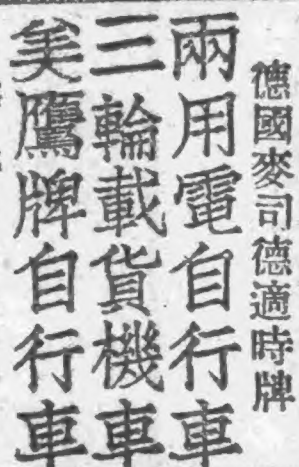 德國麥司德適時牌
兩用電自行車
三輪載貨機車
美鷹牌自行車